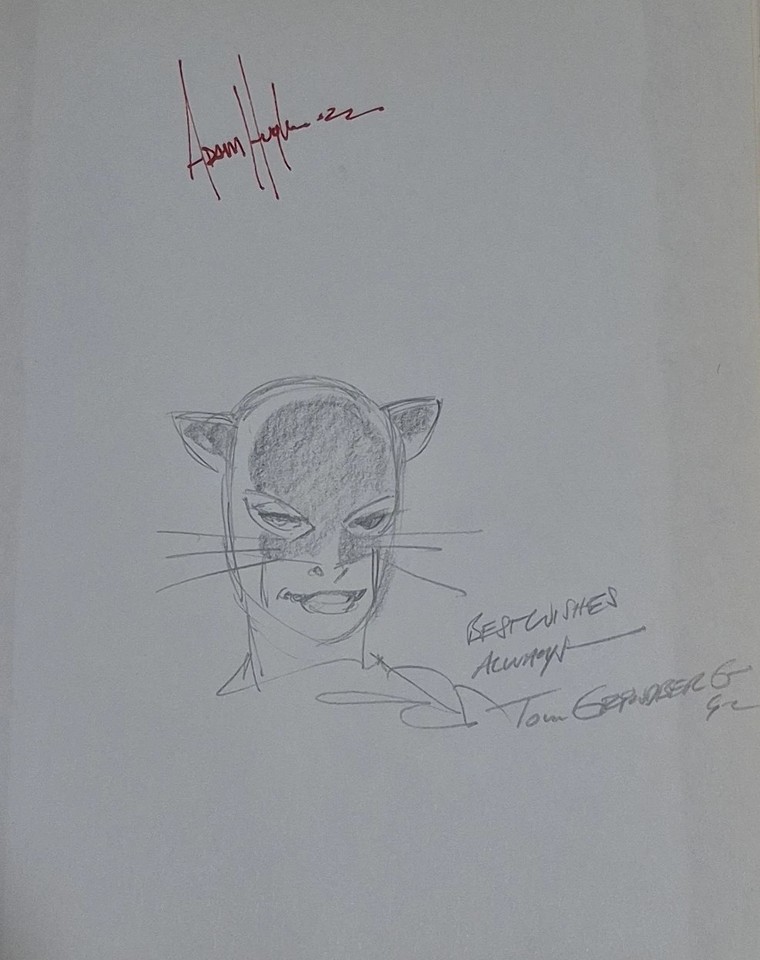 ADAM Hughes '22
BEST WISHES
ALWAYS
Tom GRINDBERG